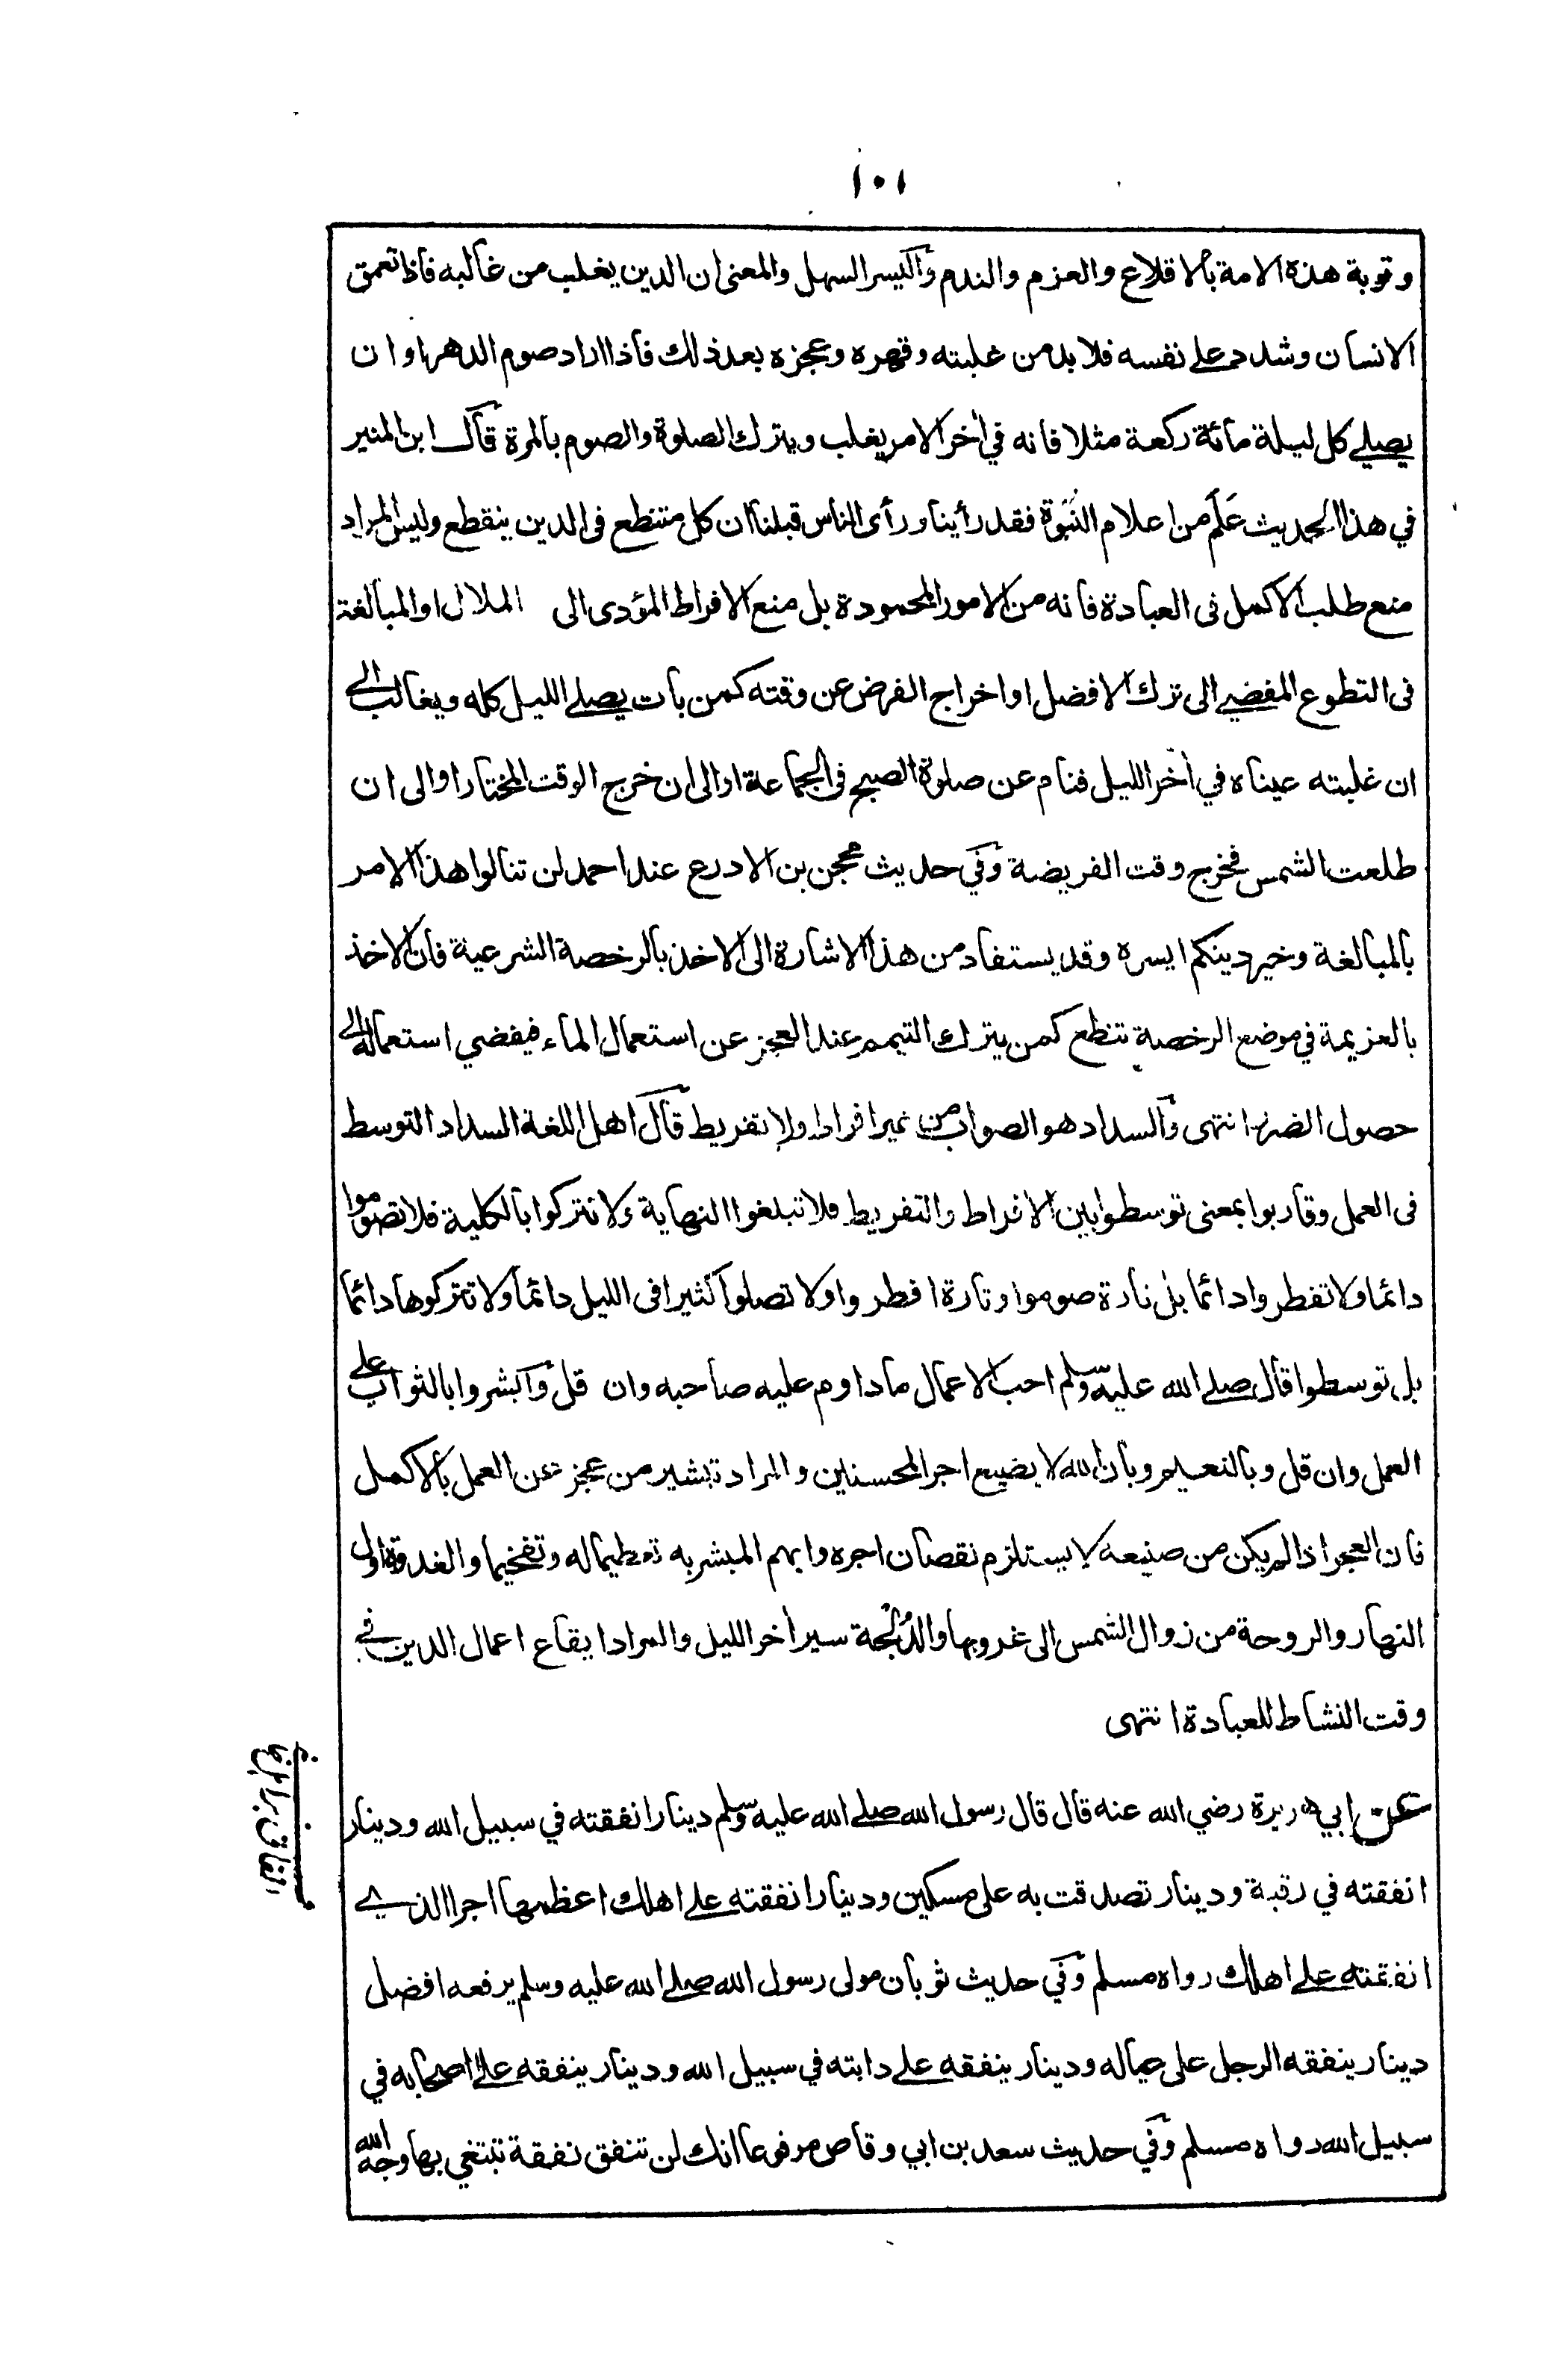 ١٠١
وتوبة هذه الامة بالاقلاع والعزم والندم واليسر السهل والمعنى ان الدين يغلب من غالبه فاذا تعمق
الانسان وشدد على نفسه فلا بد من غلبته وقهره وعجزه بعد ذلك فاذا اراد صوم الدهر او ان
يصلي كل ليلة مائة ركعة مثلا فانه في أخر الامر يغلب ويترك الصلوة والصوم بالمرة قال ابن المنير
في هذا الحديث عَلَم من اعلام النبوة فقد رأينا ورأى الناس قبلنا ان كل متنطع فى الدين ينقطع وليس المراد
منع طلب الاكمل فى العبادة فانه من الامور المحمودة بل منع الافراط المؤدى الى الملال او المبالغة
فى التطوع المفضي الى ترك الافضل او اخراج الفرض عن وقته كمن بات يصلي الليل كله ويغالب الى
ان غلبته عيناه في أخر الليل فنام عن صلوة الصبح فى الجماعة او الى ان خرج الوقت المختار او الى ان
طلعت الشمس فخرج وقت الفريضة وفي حديث محجن بن الادرع عند احمد لن تنالوا هذا الامر
بالمبالغة وخير دينكم ايسره وقد يستفاد من هذا الاشارة الى الاخذ بالرخصة الشرعية فان الاخذ
بالعزيمة في موضع الرخصة تنطع كمن يترك التيمم عند العجز عن استعمال الماء فيفضي استعماله الى
حصول الضرر انتهى والسداد هو الصواب من غير افراط ولا تفريط قال اهل اللغة السداد التوسط
فى العمل وقاربوا بمعنى توسطوا بين الافراط والتفريط فلا تبلغوا النهاية ولا تتركوا بالكلية فلا تصوموا
دائما ولا تفطروا دائما بل تارة صوموا وتارة افطروا ولا تصلوا كثيرا فى الليل دائما ولا تتركوها دائما
بل توسطوا قال صلى الله عليه وسلم احب الاعمال ما داوم عليه صاحبه وان قل وابشروا بالثواب على
العمل وان قل وبالنعيم وبان الله لا يضيع اجر المحسنين والمراد تبشير من عجز عن العمل بالاكمل
فان العجز اذا لم يكن من صنيعه لا يستلزم نقصان اجره وابهم المبشر به تعظيما له وتفخيما والغدوة اول
النهار والروحة من زوال الشمس الى غروبها والدُّلجة سير أخر الليل والمراد ايقاع اعمال الدين في
وقت النشاط للعبادة انتهى
عن ابي هريرة رضي الله عنه قال قال رسول الله صلى الله عليه وسلم دينار انفقته في سبيل الله ودينار
انفقته في رقبة ودينار تصدقت به على مسكين ودينار انفقته على اهلك اعظمها اجرا الذي
انفقته على اهلك رواه مسلم وفي حديث ثوبان مولى رسول الله صلى الله عليه وسلم يرفعه افضل
دينار ينفقه الرجل على عياله ودينار ينفقه على دابته في سبيل الله ودينار ينفقه على اصحابه في
سبيل الله رواه مسلم وفي حديث سعد بن ابي وقاص مرفوعا انك لن تنفق نفقة تبتغي بها وجه الله